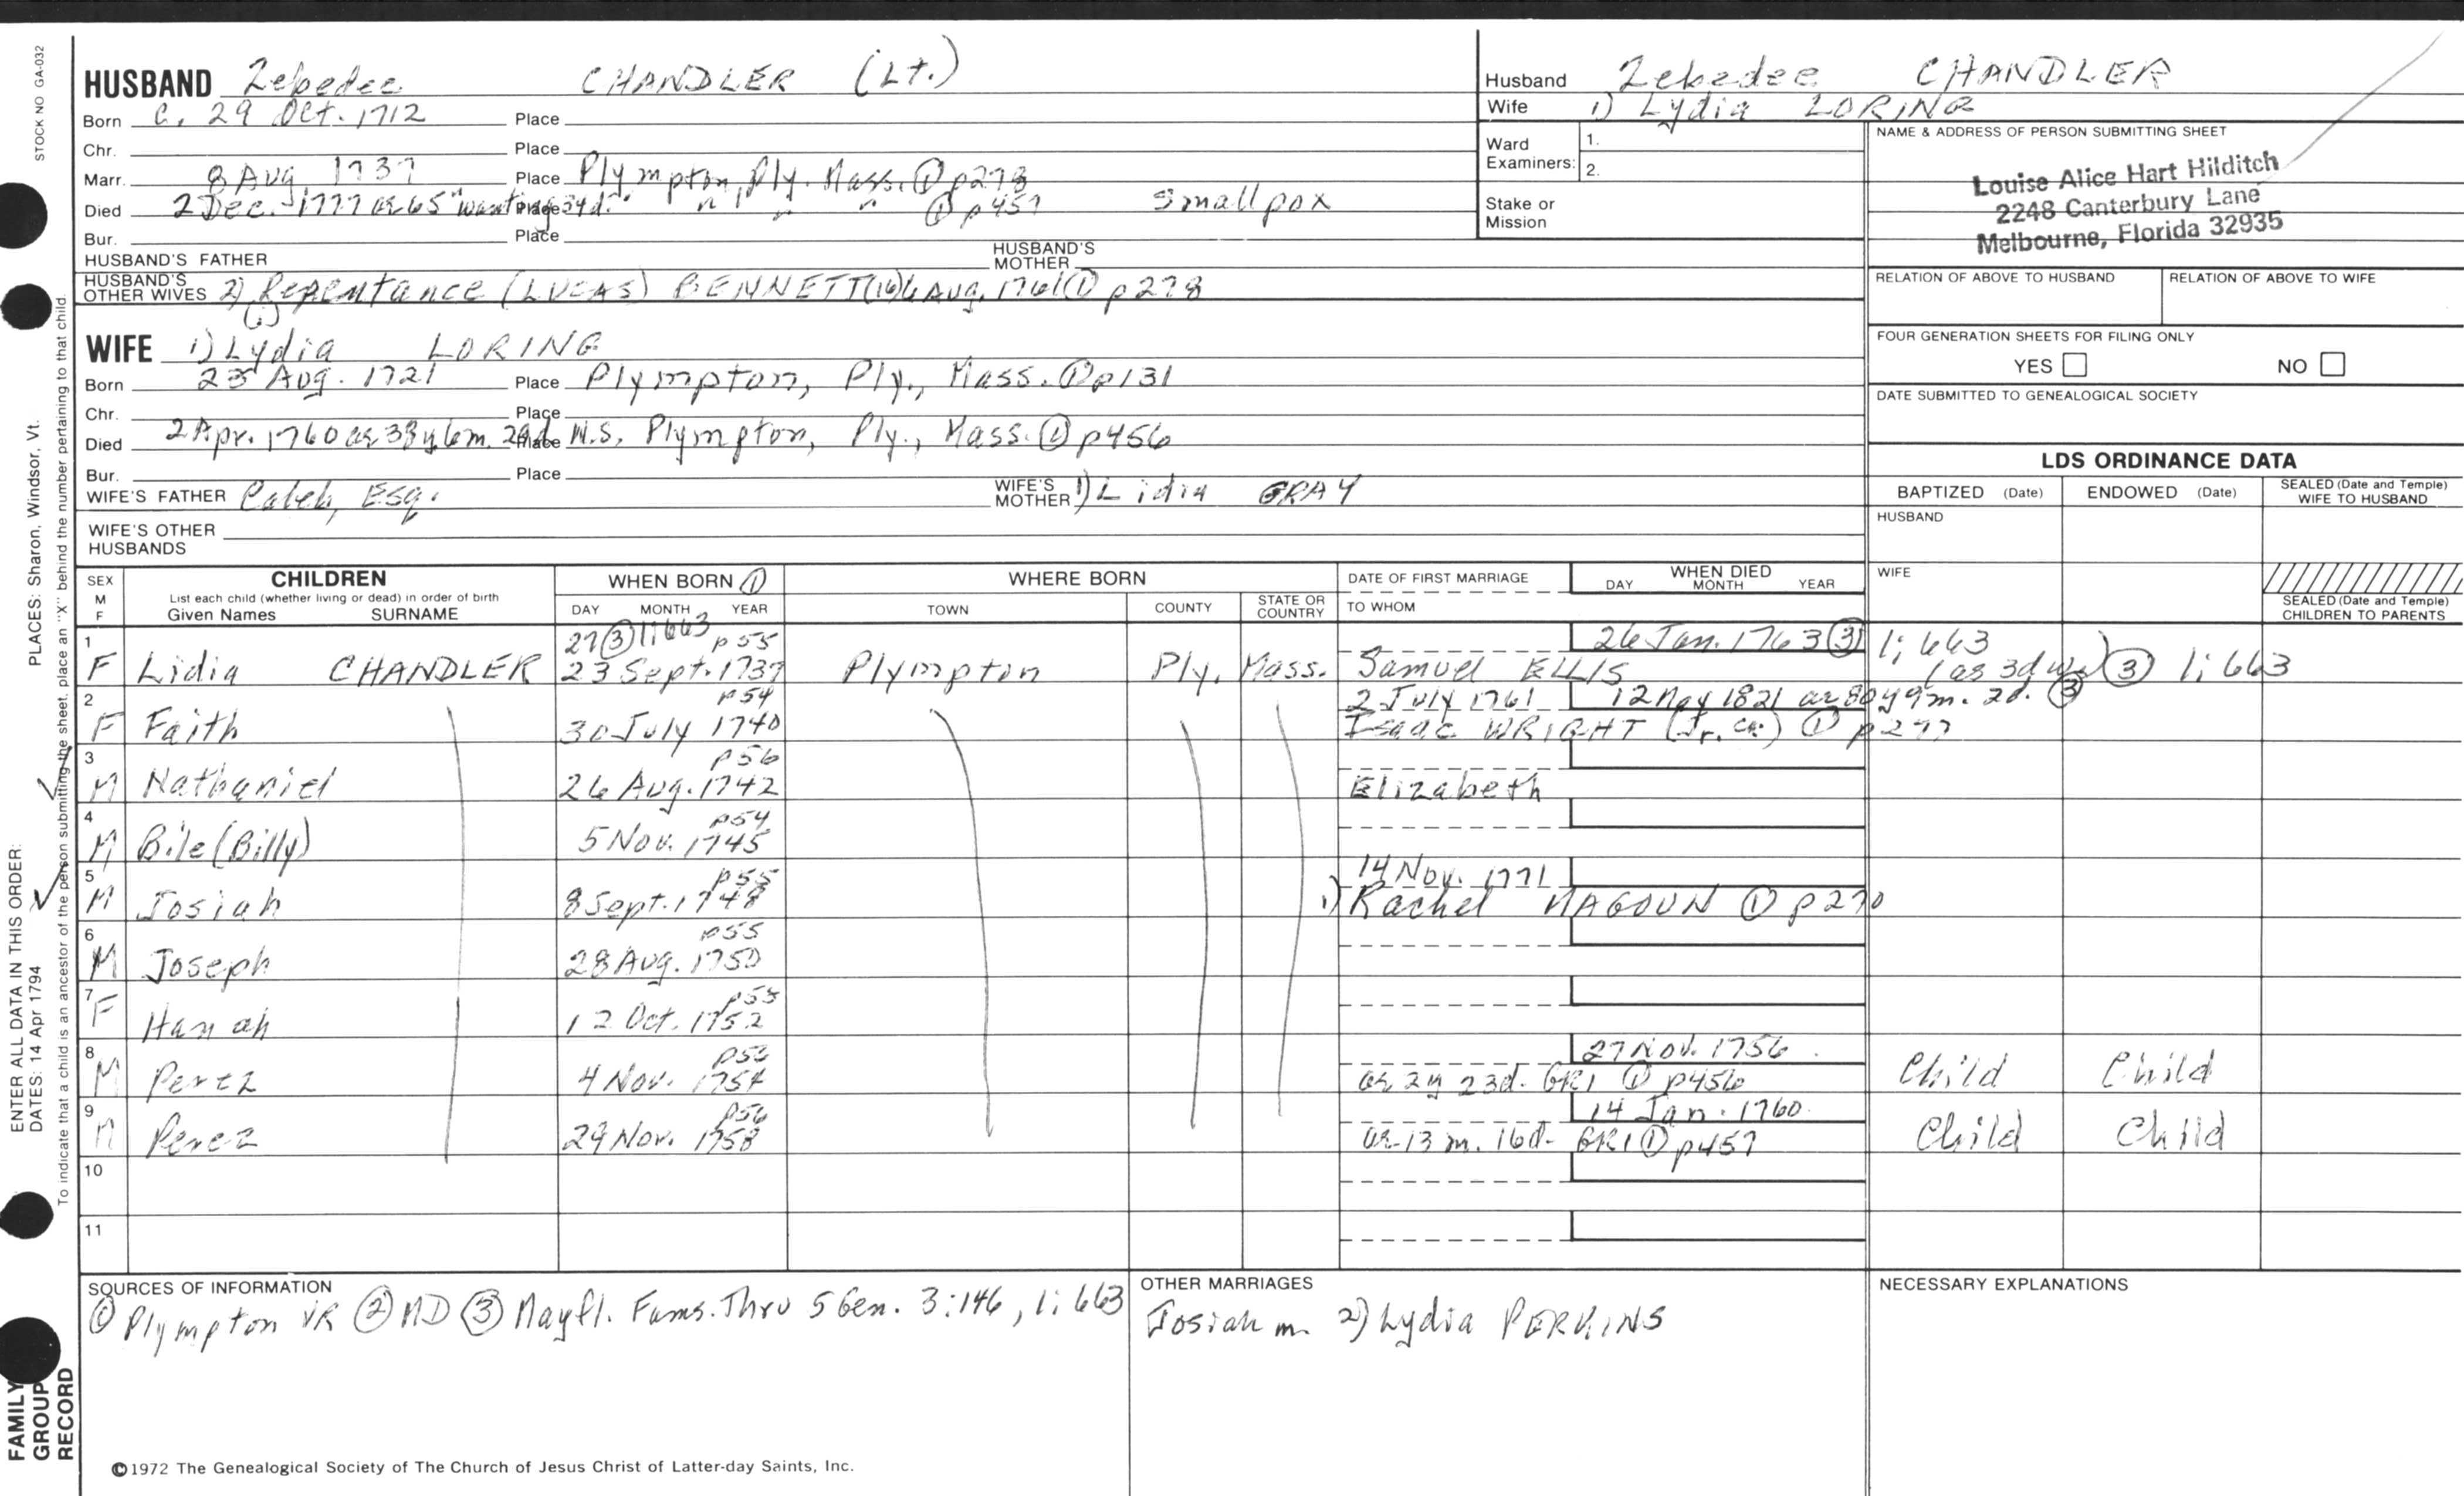 STOCK NO GA-032
PLACES: Sharon, Windsor, Vt.
ENTER ALL DATA IN THIS ORDER:
DATES: 14 Apr 1794
To indicate that a child is an ancestor of the person submitting the sheet, place an "X" behind the number pertaining to that child.
FAMILY GROUP RECORD
HUSBAND Zebedee CHANDLER (Lt.)
Born C. 29 Oct. 1712 Place
Chr. Place
Marr. 8 Aug 1737 Place Plympton, Ply. Mass. ① p278
Died 2 Dec. 1777 ae 65 "wanting 34d." Place " " " ① p457 Smallpox
Bur. Place
HUSBAND'S FATHER HUSBAND'S MOTHER
HUSBAND'S OTHER WIVES 2) Repentance (LUCAS) BENNETT (16) 6 Aug. 1761 ① p278
WIFE 1) Lydia LORING
Born 23 Aug. 1721 Place Plympton, Ply., Mass. ① p131
Chr. Place
Died 2 Apr. 1760 ae 38y 6m. 29d. Place N.S. Plympton, Ply., Mass. ① p456
Bur. Place
WIFE'S FATHER Caleb, Esq. WIFE'S MOTHER 1) Lidia GRAY
WIFE'S OTHER HUSBANDS
Husband Zebedee CHANDLER
Wife 1) Lydia LORING
Ward Examiners: 1.
2.
Stake or Mission
NAME & ADDRESS OF PERSON SUBMITTING SHEET
Louise Alice Hart Hilditch
2248 Canterbury Lane
Melbourne, Florida 32935
RELATION OF ABOVE TO HUSBAND RELATION OF ABOVE TO WIFE
FOUR GENERATION SHEETS FOR FILING ONLY
YES NO
DATE SUBMITTED TO GENEALOGICAL SOCIETY
LDS ORDINANCE DATA
BAPTIZED (Date) ENDOWED (Date) SEALED (Date and Temple) WIFE TO HUSBAND
HUSBAND
WIFE
SEALED (Date and Temple) CHILDREN TO PARENTS
SEX M F CHILDREN WHEN BORN ① WHERE BORN DATE OF FIRST MARRIAGE WHEN DIED
List each child (whether living or dead) in order of birth DAY MONTH YEAR
Given Names SURNAME DAY MONTH YEAR TOWN COUNTY STATE OR COUNTRY TO WHOM
1 27 ③ 1:663 p55 26 Jan. 1763 ③ 1:663
F Lidia CHANDLER 23 Sept. 1737 Plympton Ply. Mass. Samuel ELLIS (as 3d w.) ③ 1:663
2 p54 2 July 1761 12 May 1821 ae 80y 9m. 2d. ③
F Faith 30 July 1740 Isaac WRIGHT (Jr. ) ① p277
3 p56
M Nathaniel 26 Aug. 1742 Elizabeth
4 p54
M Bile (Billy) 5 Nov. 1745
5 p55 14 Nov. 1771
M Josiah 8 Sept. 1748 1) Rachel MAGOUN ① p270
6 p55
M Joseph 28 Aug. 1750
7 p55
F Hanah 12 Oct. 1752
8 p56 27 Nov. 1756
M Perez 4 Nov. 1754 ae 2y 23d. GR1 ① p456 Child Child
9 p56 14 Jan. 1760
M Perez 29 Nov. 1758 ae 13m. 16d. GR1 ① p457 Child Child
10
11
SOURCES OF INFORMATION
① Plympton VR ② MD ③ Mayfl. Fams. Thru 5 Gen. 3:146, 1:663
OTHER MARRIAGES
Josiah m. 2) Lydia PERKINS
NECESSARY EXPLANATIONS
©1972 The Genealogical Society of The Church of Jesus Christ of Latter-day Saints, Inc.